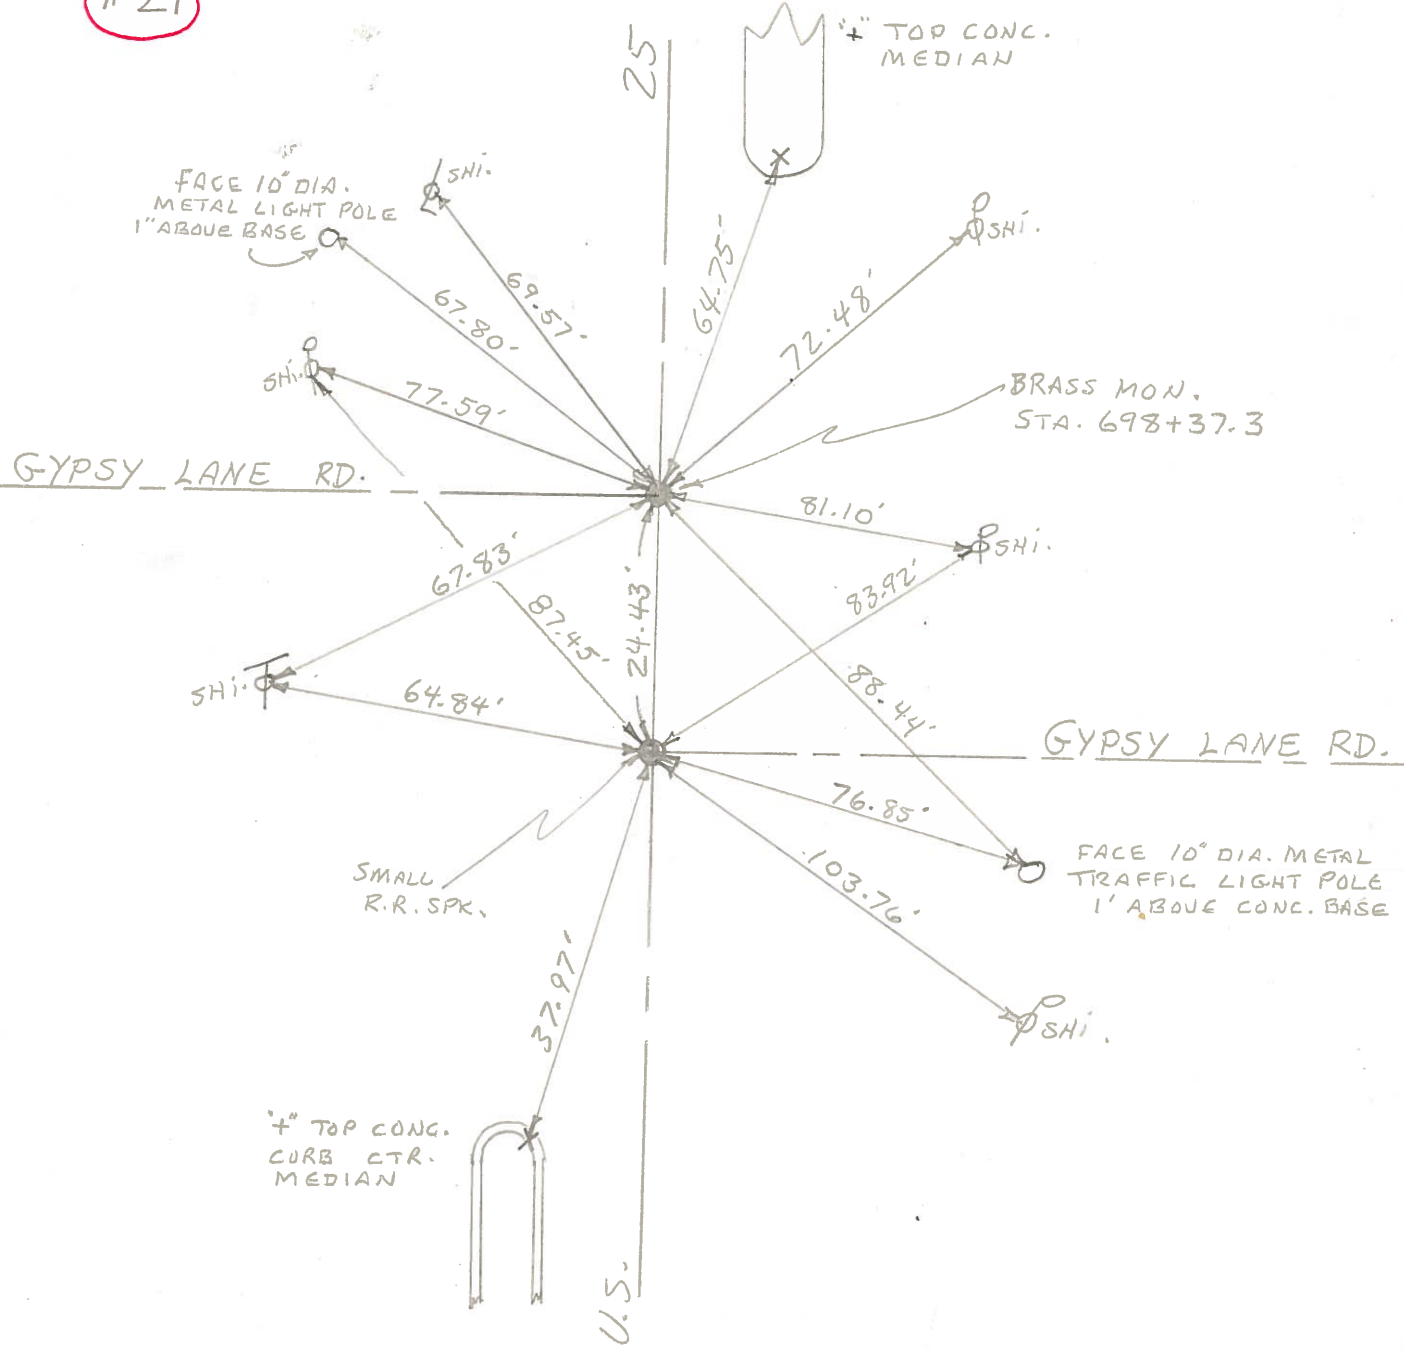 # 21
25
"+" TOP CONC.
MEDIAN
SHI.
FACE 10" DIA.
METAL LIGHT POLE
1" ABOVE BASE
SHI.
69.57'
67.80'
64.75'
72.48'
SHI.
77.59'
BRASS MON.
STA. 698+37.3
GYPSY LANE RD.
81.10'
SHI.
67.83'
83.92'
87.45'
24.43'
SHI.
64.84'
88.44'
GYPSY LANE RD.
76.85'
103.76'
FACE 10" DIA. METAL
TRAFFIC LIGHT POLE
1' ABOVE CONC. BASE
SMALL
R.R. SPK.
37.97'
SHI.
"+" TOP CONC.
CURB CTR.
MEDIAN
U.S.